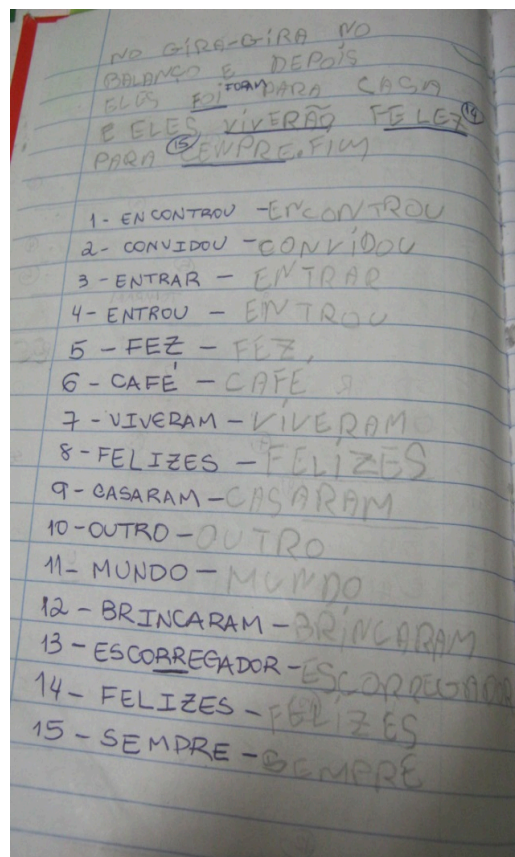 NO GIRA-GIRA NO
BALANÇO E DEPOIS
ELES FOI FORAM PARA CASA
E ELES VIVERÃO FELEZ 14
PARA 15 CENPRE. FIM
1 - ENCONTROU - ENCONTROU
2 - CONVIDOU - CONVIDOU
3 - ENTRAR - ENTRAR
4 - ENTROU - ENTROU
5 - FEZ - FEZ,
6 - CAFÉ - CAFE
7 - VIVERAM - VIVERAM
8 - FELIZES - FELIZES
9 - CASARAM - CASARAM
10 - OUTRO - OUTRO
11 - MUNDO - MUNDO
12 - BRINCARAM - BRINCARAM
13 - ESCORREGADOR - ESCORREGADOR
14 - FELIZES - FELIZES
15 - SEMPRE - SEMPRE